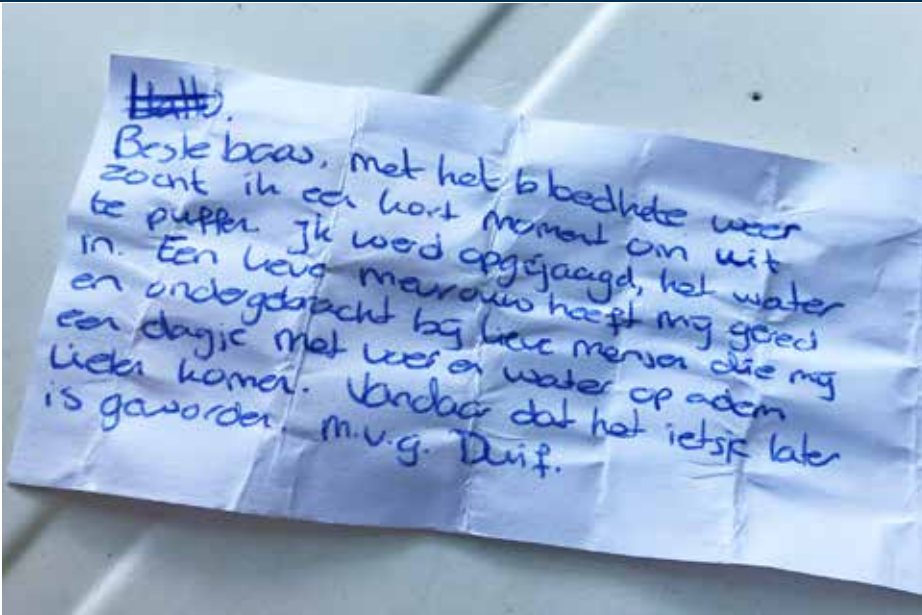 Hallo.
Beste baas, met het bloedhete weer
zocht ik een kort moment om uit
te puffen. Ik werd opgejaagd, het water
in. Een lieve mevrouw heeft mij gered
en ondergebracht bij lieve mensen die mij
een dagje met voer en water op adem
lieten komen. Vandaar dat het ietsje later
is geworden. m.v.g. Duif.